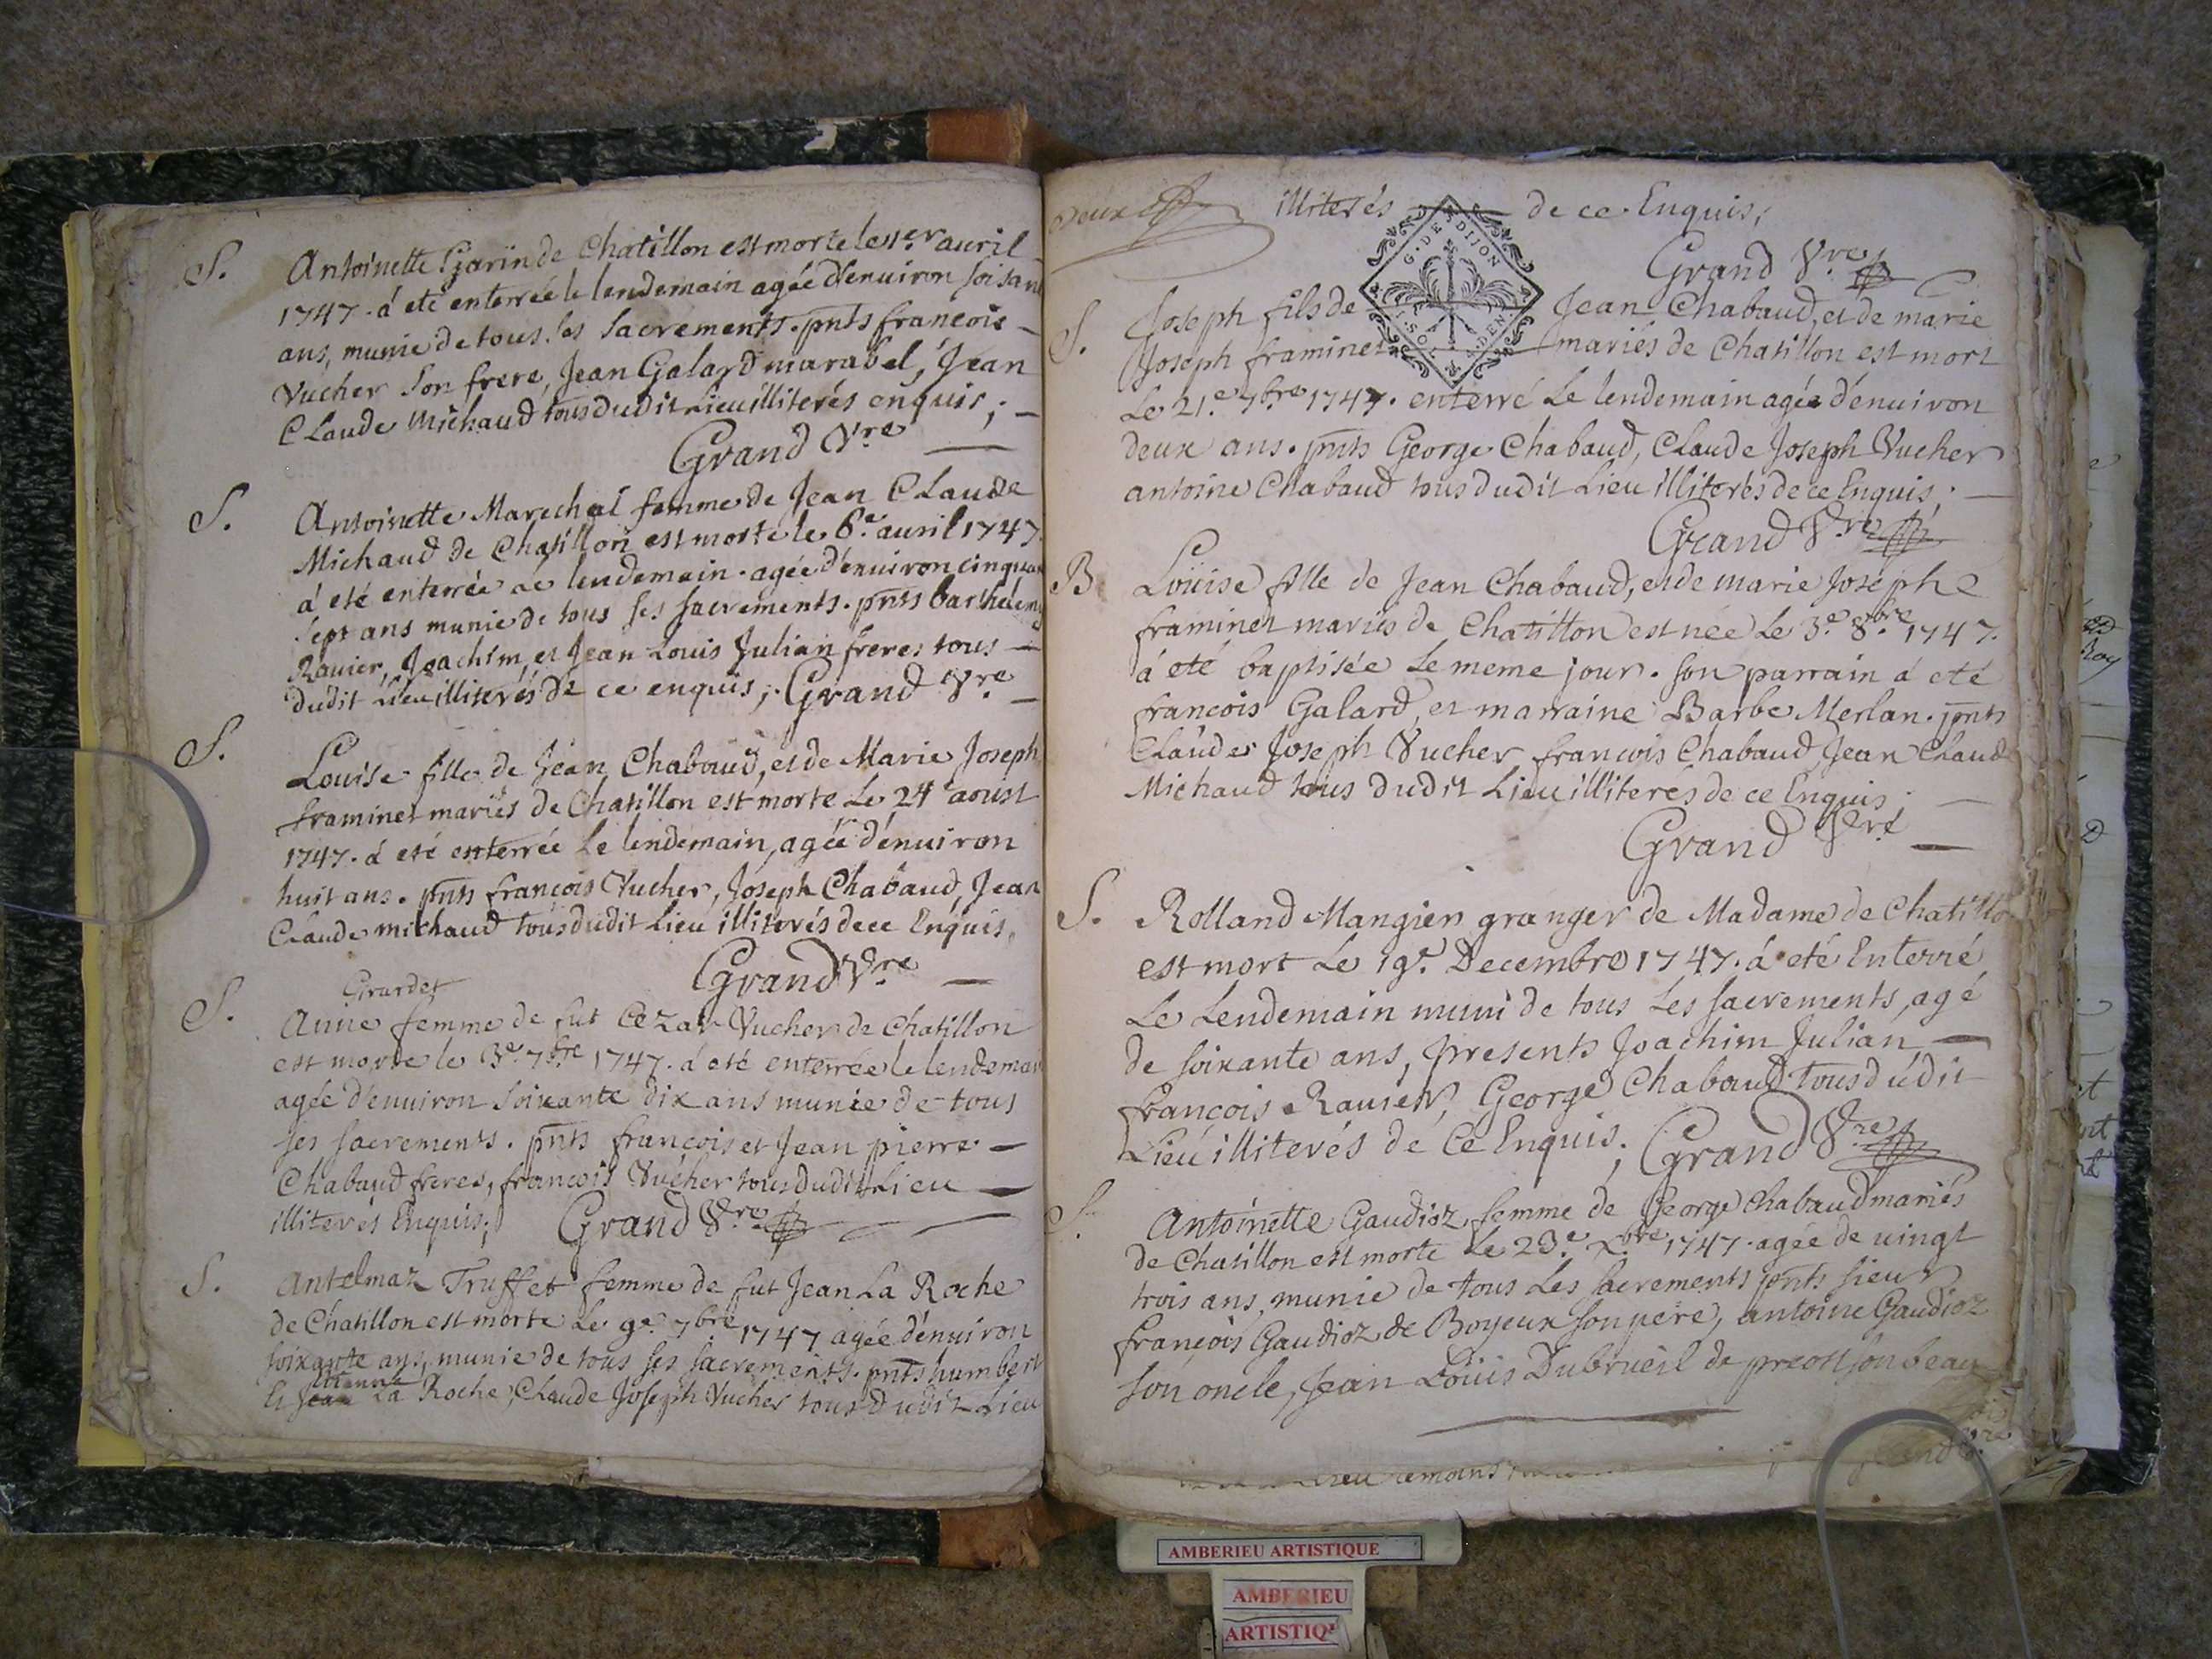 S. Antoinette Garin de Chatillon est morte le 1er auril
1747. á eté enterrée le lendemain agée d'enuiron soisan
ans, munie de tous ses Sacrements. pnts francois
Vucher Son frere, Jean Galard marabel, Jean
Claude Michaud tous dudit Lieu illiterés enquis;
Grand Vre
S. Antoinette Marechal femme de Jean Claude
Michaud de Chatillon est morte le 6e. auril 1747
á eté enterrée Le lendemain. agée d'enuiron cinquan
sept ans munie de tous ses sacrements. pnts barthelemy
Rauier, Joachim, et Jean Louis Julian freres tous
dudit Lieu illiterés de ce enquis; Grand Vre
S. Louise fille de Jean Chabaud, et de Marie Joseph
framinet mariés de Chatillon est morte Le 24 aoust
1747. á eté enterrée Le lendemain, agée d'enuiron
huit ans. pnts françois Vucher, Joseph Chabaud, Jean
Claude michaud tous dudit Lieu illiterés de ce Enquis,
Grand Vre
Girardet
S. Anne femme de fut Cezar Vucher de Chatillon
est morte le 3e. 7bre 1747. á eté enterrée le lendemain
agée d'enuiron Soixante dix ans munie de tous
ses sacrements. pnts françois et Jean pierre
Chabaud freres, francois Vucher tous dudit Lieu
illiterés Enquis; Grand Vre
S. Antelmaz Truffet femme de fut Jean La Roche
de Chatillon est morte Le 9e. 7bre 1747 agée d'enuiron
soixante ans, munie de tous ses sacrements. pnts humbert
Etienne
et Jean La Roche, Claude Joseph Vucher tous dudit Lieu
Deux
illiterés de ce Enquis;
G. DE DIJON
Grand Vre
S. Joseph fils de Jean Chabaud, et de marie
Joseph framinet mariés de Chatillon est mort
Le 21e. 7bre 1747. enterré Le lendemain agée d'enuiron
deux ans. pnts George Chabaud, Claude Joseph Vucher
antoine Chabaud tous dudit Lieu illiterés de ce Enquis;
Grand Vre
B. Loüise fille de Jean Chabaud, et de marie Josephe
framinet mariés de Chatillon est née Le 3e. 8bre 1747.
á eté baptisée Le meme jour. son parrain á eté
francois Galard, et marraine Barbe Merlan. pnts
Claude Joseph Vucher, francois Chabaud, Jean Claude
Michaud tous dudit Lieu illiterés de ce Enquis;
Grand Vre
S. Rolland Mangien granger de Madame de Chatillo
est mort Le 19e. Decembre 1747. á eté Enterré
Le Lendemain muni de tous Les sacrements, agé
de soixante ans, presents Joachim Julian
françois Rauier, George Chabaud tous dudit
Lieu illiterés de Ce Enquis; Grand Vre
S. Antoinette Gaudioz femme de George chabaud mariés
de Chatillon est morte Le 23e. xbre 1747. agée de uingt
trois ans, munie de tous Les sacrements pnts sieur
françois Gaudioz de Boyeux son pere, antoine Gaudioz
son oncle, Jean Loüis Dubrueil de preost son beau
Lieu temoins
AMBERIEU ARTISTIQUE
AMBERIEU
ARTISTIQ